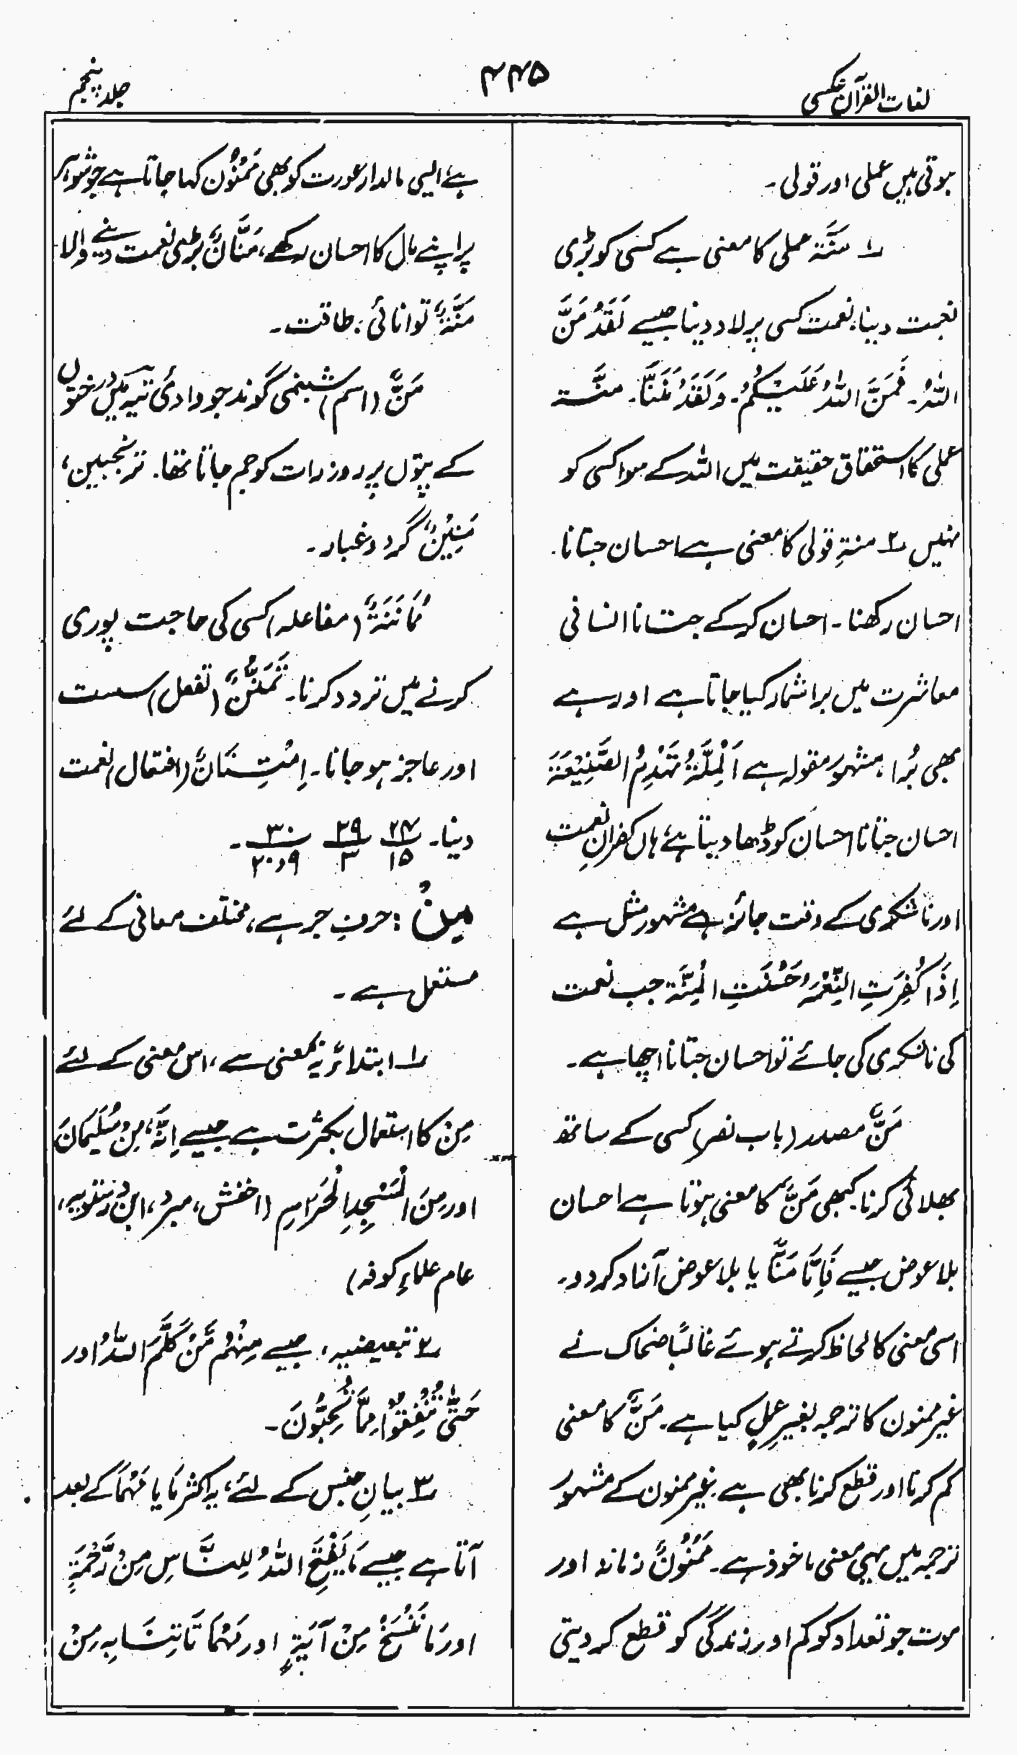 لغات القرآن عکسی
۴۴۵
جلد پنجم
ہوتی ہیں عملی اور قولی۔
۱ منّۃ عملی کا معنی ہے کسی کو بڑی
نعمت دینا، نعمت کسی پر لاد دینا جیسے لَقَدْ مَنَّ
اللّٰہُ۔ فَمَنَّ اللّٰہُ عَلَیْکُمْ۔ وَلَقَدْ مَنَنَّا۔ منّۃ
عملی کا استحقاق حقیقت میں اللہ کے سوا کسی کو
نہیں ۲ منۃِ قولی کا معنی ہے احسان جتانا۔
احسان رکھنا۔ احسان کر کے جتانا انسانی
معاشرت میں برا شمار کیا جاتا ہے اور ہے
بھی بُرا، مشہور مقولہ ہے اَلْمِنَّۃُ تَہْدِمُ الصَّنِیْعَۃَ
احسان جتانا احسان کو ڈھا دیتا ہے ہاں کفرانِ نعمت
اور ناشکری کے وقت جائز ہے مشہور مثل ہے
اِذَا کُفِرَتِ النِّعْمَۃُ حَسُنَتِ الْمِنَّۃ جب نعمت
کی ناشکری کی جائے تو احسان جتانا اچھا ہے۔
مَنٌّ مصدر (باب نصر) کسی کے ساتھ
بھلائی کرنا کبھی مَنٌّ کا معنی ہوتا ہے احسان
بلا عوض جیسے فَاِمَّا مَنًّا یا بلا عوض آزاد کر دو۔
اسی معنی کا لحاظ کرتے ہوئے غالبًا ضحاک نے
غیر ممنون کا ترجمہ بغیر عمل کیا ہے۔ مَنٌّ کا معنی
کم کرنا اور قطع کرنا بھی ہے۔ غیر ممنون کے مشہور
ترجمہ میں یہی معنی ماخوذ ہے۔ مَمْنُوْنٌ زمانہ اور
موت جو تعداد کو کم اور زندگی کو قطع کر دیتی
ہے، ایسی مالدار عورت کو بھی مَمْنُوْن کہا جاتا ہے جو شوہر
پر اپنے مال کا احسان رکھے، مَنَّانٌ بڑی نعمت دینے والا
مُنَّۃٌ توانائی، طاقت۔
مَنٌّ (اسم) شبنمی گوند جو وادیٔ تیہ میں درختوں
کے پتوں پر روز رات کو جم جاتا تھا۔ ترنجبین،
مَنِیْنٌ گرد و غبار۔
مُمَانَنَۃٌ (مفاعلہ) کسی کی حاجت پوری
کرنے میں تردد کرنا۔ تَمَنُّنٌ (تفعل) سست
اور عاجز ہو جانا۔ اِمْتِنَانٌ (افتعال) نعمت
دینا۔ ۲۷/۱۵ ۲۹/۳ ۳۰/۹و۲۰۔
مِنْ: حرفِ جر ہے، مختلف معانی کے لئے
مستعمل ہے۔
۱ ابتدائیہ بمعنی سے، اس معنی کے لئے
مِن کا استعمال بکثرت ہے جیسے اِنَّہٗ مِنْ سُلَیْمَانَ
اور مِنَ الْمَسْجِدِ الْحَرَامِ (اخفش، مبرد، ابن درستویہ،
عام علماءِ کوفہ)
۲ تبعیضیہ، جیسے مِنْہُمْ مَّنْ کَلَّمَ اللّٰہُ اور
حَتّٰی تُنْفِقُوْا مِمَّا تُحِبُّوْنَ۔
۳ بیانِ جنس کے لئے، یہ اکثر مَا یا مَہْمَا کے بعد
آتا ہے جیسے مَا یَفْتَحِ اللّٰہُ لِلنَّاسِ مِنْ رَّحْمَۃٍ
اور مَا نَنْسَخْ مِنْ آیَۃٍ اور مَہْمَا تَاْتِنَا بِہٖ مِنْ